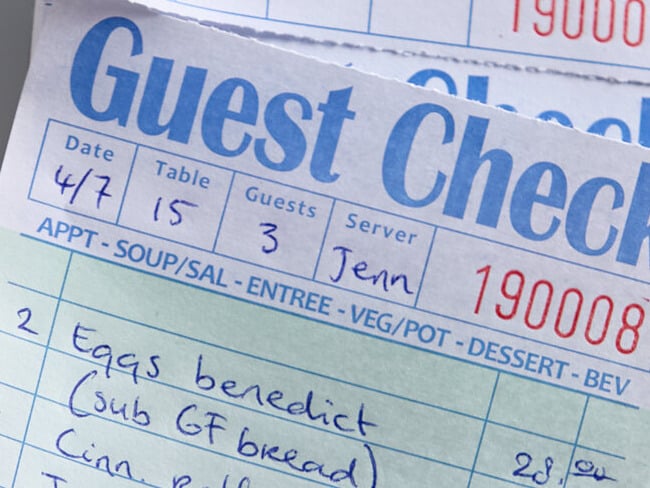 19000
Check
Guest Check
Date Table Guests Server
4/7 15 3 Jenn
190008
APPT - SOUP/SAL - ENTREE - VEG/POT - DESSERT - BEV
2 Eggs benedict
(sub GF bread) 28.00
Cinn.